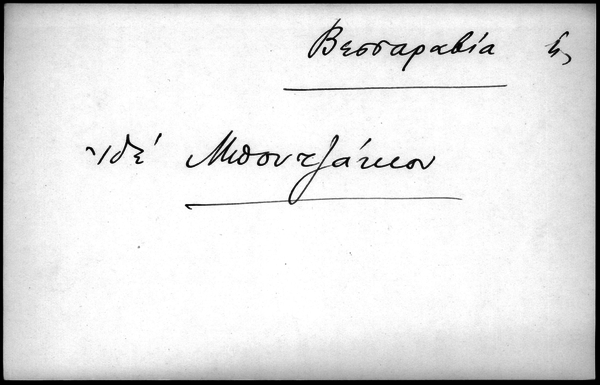 Βεσσαραβία ἡ
Ἰδὲ Μπουτζάκιον